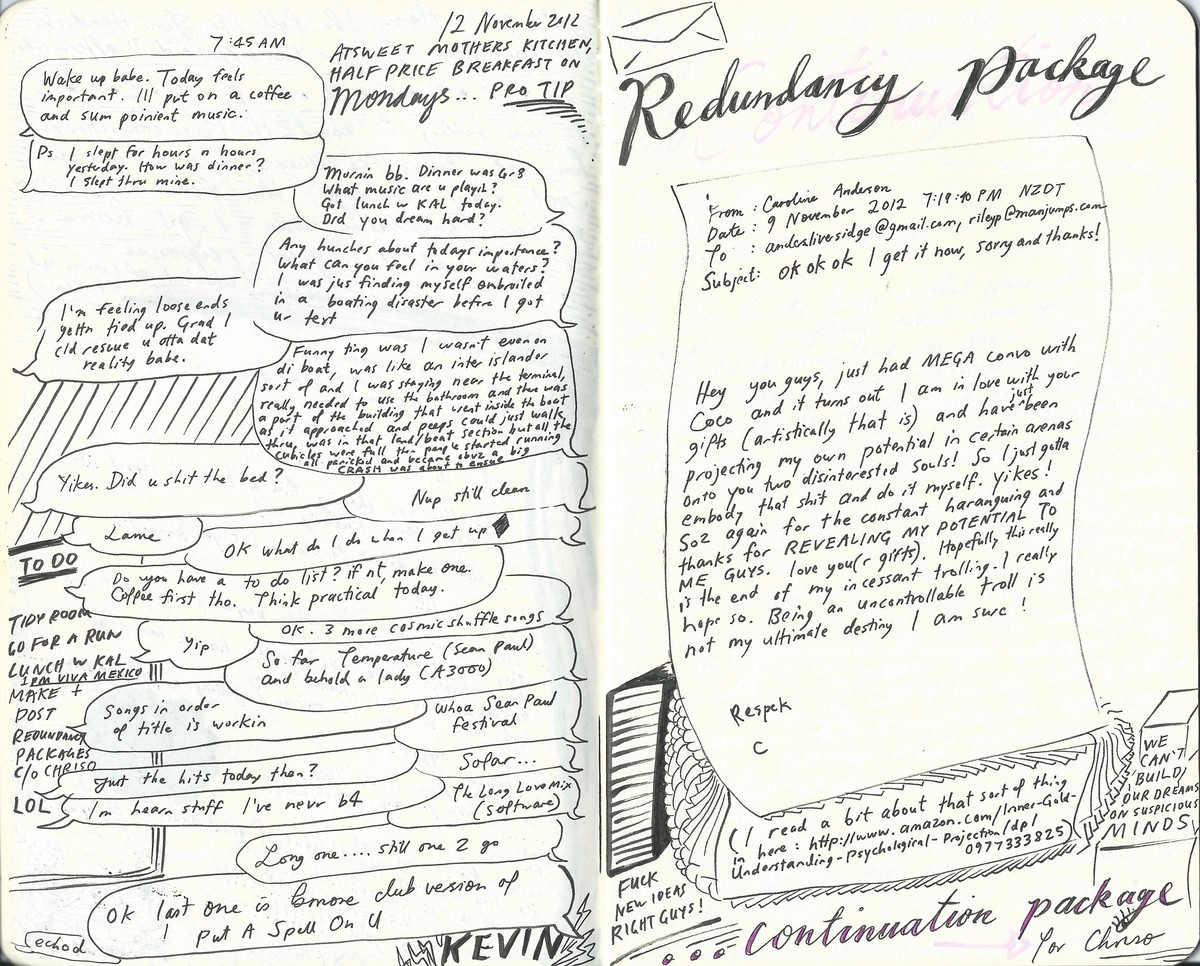 12 November 2012
7:45 AM
AT SWEET MOTHERS KITCHEN,
HALF PRICE BREAKFAST ON
Mondays... PRO TIP
Wake up babe. Today feels
important. I'll put on a coffee
and sum poinient music.
Ps I slept for hours n hours
yesterday. How was dinner?
I slept thru mine.
Mornin bb. Dinner was Gr8
What music are u playin?
Got lunch w KAL today.
Did you dream hard?
Any hunches about todays importance?
What can you feel in your waters?
I was jus finding myself embroiled
in a boating disaster before I got
ur text
I'm feeling loose ends
gettn tied up. Grad I
cld rescue u otta dat
reality babe.
Funny ting was I wasn't even on
di boat, was like an inter islander
sort of and I was staying near the terminal,
really needed to use the bathroom and there was
a part of the building that went inside the boat
as it approached and peeps could just walk
thru, was in that land/boat section but all the
cubicles were full then people started running
all panicked and became obvz a big
CRASH was about to ensue
Yikes. Did u shit the bed?
Nup still clean
Lame
OK what do I do when I get up
TO DO
Do you have a to do list? if nt, make one.
Coffee first tho. Think practical today.
TIDY ROOM
GO FOR A RUN
LUNCH W KAL
1PM VIVA MEXICO
MAKE +
POST
REDUNDANCY
PACKAGES
C/O CHRISO
LOL
OK. 3 more cosmic shuffle songs
Yip
So far Temperature (Sean Paul)
and behold a lady (A3000)
Songs in order
of title is workin
Whoa Sean Paul
festival
Just the hits today then?
Solar...
I'm hearn stuff I've nevr b4
The Long Love Mix
(software)
Long one.... still one 2 go
OK last one is bmore club version of
I Put A Spell On U
echod
KEVIN
Redundancy Package
From : Caroline Anderson
Date : 9 November 2012 7:19:40 PM NZDT
To : andcoliversidge@gmail.com, rileyp@manjumps.com
Subject: OK ok ok I get it now, sorry and thanks!
Hey you guys, just had MEGA convo with
Coco and it turns out I am in love with your
gifts (artistically that is) and have just been
projecting my own potential in certain arenas
onto you two disinterested souls! So I just gotta
embody that shit and do it myself. Yikes!
Soz again for the constant haranguing and
thanks for REVEALING MY POTENTIAL TO
ME GUYS. love you(r gifts). Hopefully this really
is the end of my incessant trolling. I really
hope so. Being an uncontrollable troll is
not my ultimate destiny I am sure!
Respek
C
(I read a bit about that sort of thing
in here : http://www.amazon.com/Inner-Gold-
Understanding-Psychological-Projection/dp/
0977333825)
WE
CAN'T
BUILD
OUR DREAMS
ON SUSPICIOUS
MINDS
FUCK
NEW IDEAS
RIGHT GUYS!
... continuation package
for Chriso